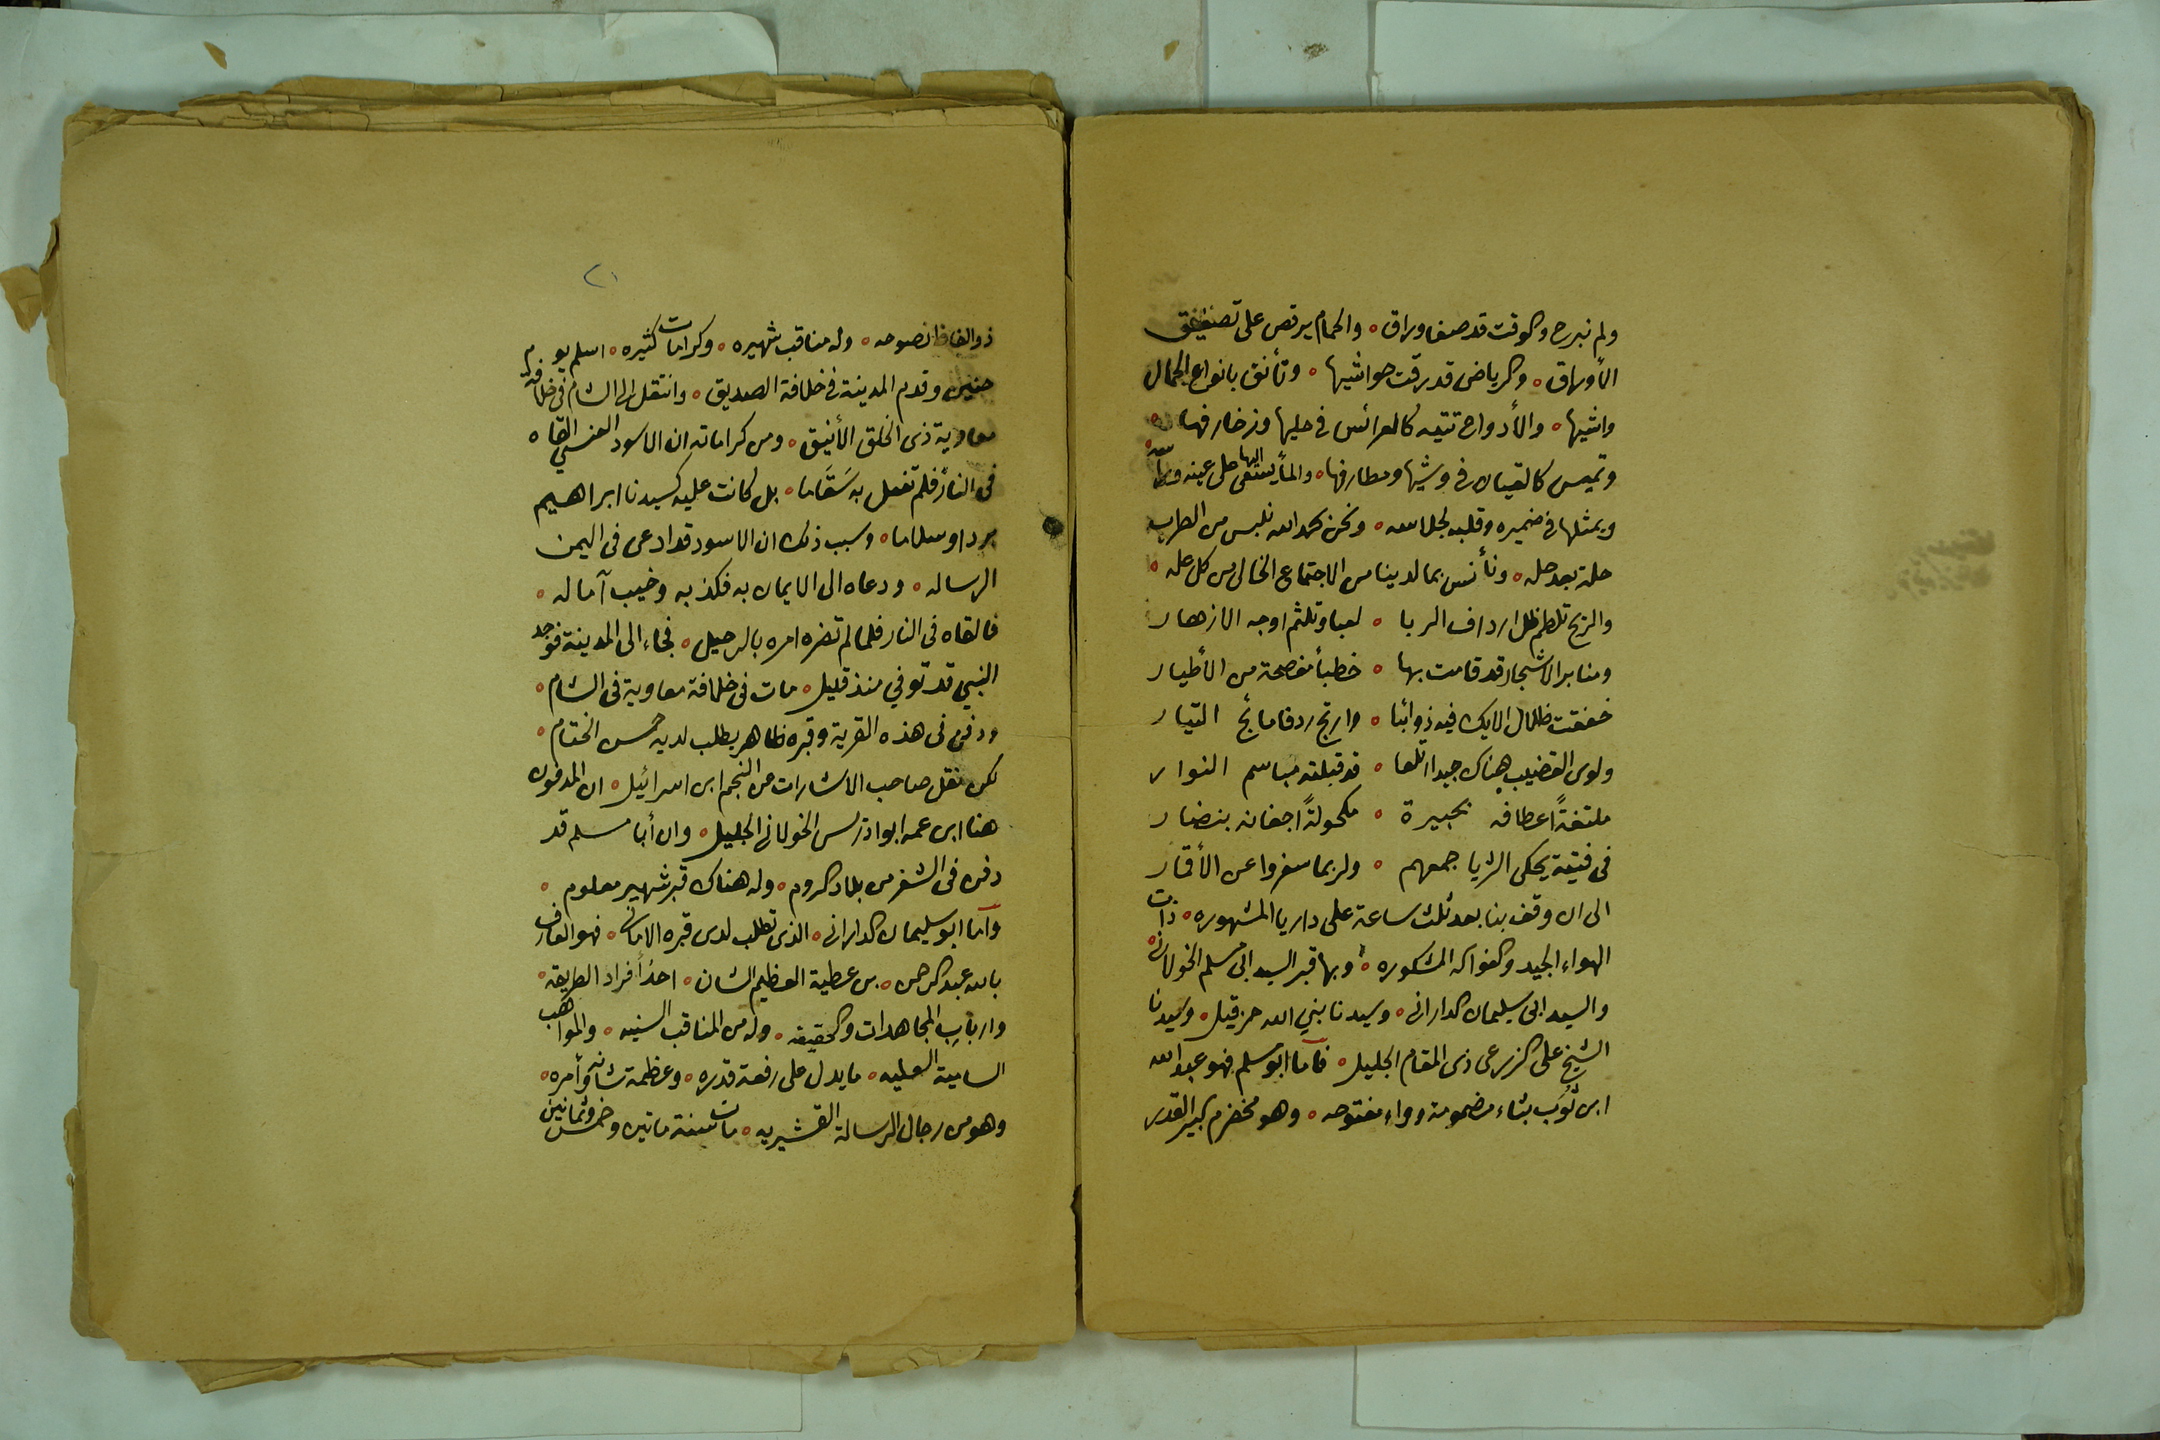 ولم نبرح والوقت قد صفا وراق ٥ والحمام يرقص على تصفيق
الأوراق ٥ والرياض قد رقت حواشيها ٥ وتأنق بانواع الجمال
واشيها ٥ والأدواح تتيه كالعرائس في حليها وزخارفها ٥
وتميس كالقيان في وشيها ومطارفها ٥ والمأ يسعى اليها على عينه
ويمثلها في ضميره وقلبه لجلاسه ٥ ونحن بحمد الله نلبس من الطرب
حلة بعد حله ٥ ونأنس بما لدينا من الاجتماع الخالى من كل عله ٥
والريح تلطم ظل ارداف الربا ٥ لعبا وتلثم اوجه الازهار
ومنابر الاشجار قد قامت بها ٥ خطبأ مفصحة من الأطيار
خفقت ظلال الايك فيه ذوائبا ٥ وارتج ردفا مائج التيار
ولوى القضيب هناك جيدا اتلعا ٥ قد قبلته مباسم النوار
ملتفةً اعطافه بحبيرة ٥ مكحولةً اجفانه بنضار
فى فتية يحكى الثريا جمعهم ٥ ولربما سفروا عن الأقمار
الى ان وقف بنا بعد ثلث ساعة على داريا المشهوره ٥ ذات
الهواء الجيد والفواكه المشكوره ٥ وبها قبر السيد ابى مسلم الخولانى ٥
والسيد ابى سليمان الدارانى ٥ وسيدنا نبي الله حزقيل ٥ وسيدنا
الشيخ على الزرعى ذى المقام الجليل ٥ فأما ابو مسلم فهو عبد الله
ابن ثُوَب بثاء مضمومة وواو مفتوحه ٥ وهو مخضرم كبير القدر
٢١
ذو الفاظ نصوحه ٥ وله مناقب شهيره ٥ وكرامات كثيره ٥ اسلم يوم
حنين وقدم المدينة في خلافة الصديق ٥ وانتقل الى الشام فى خلافة
معاوية ذى الخلق الأنيق ٥ ومن كراماته ان الاسود العنسي القاه
فى النار فلم تفعل به سَقَاما ٥ بل كانت عليه كسيدنا ابراهيم
بردا وسلاما ٥ وسبب ذلك ان الاسود قد ادعى فى اليمن
الرساله ٥ ودعاه الى الايمان به فكذبه وخيب آماله ٥
فالقاه فى النار فلما لم تضره امره بالرحيل ٥ فجاء الى المدينة فوجد
النبي قد توفي منذ قليل ٥ مات فى خلافة معاوية فى الشام ٥
ودفن فى هذه القرية وقبره ظاهر يطلب لديه حسن الختام ٥
لكن نقل صاحب الاشارات عن النجم ابن اسرائيل ٥ ان المدفون
هنا ابن عمه ابو ادريس الخولانى الجليل ٥ وان أبا مسلم قد
دفن فى الثغر من بلاد الروم ٥ وله هناك قبر شهير معلوم ٥
وأما ابو سليمان الدارانى ٥ الذى تطلب لدى قبره الامانى ٥ فهو العارف
بالله عبد الرحمن ٥ بن عطية العظيم الشان ٥ احد أفراد الطريقه ٥
وارباب المجاهدات والحقيقه ٥ وله من المناقب السنيه ٥ والمواهب
السامية العليه ٥ ما يدل على رفعة قدره ٥ وعظمة شانه وأمره ٥
وهو من رجال الرسالة القشيريه ٥ مات سنة مأتين وخمس وثمانين